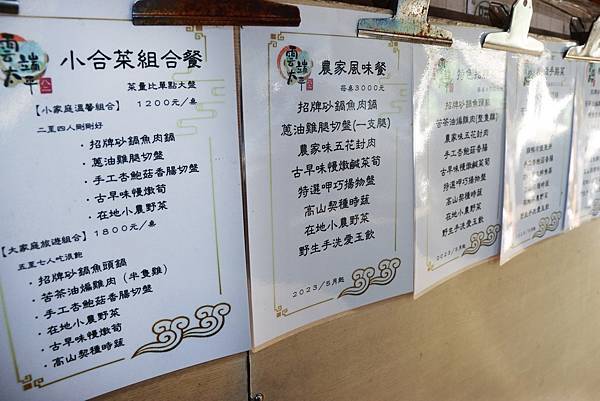 雲端太平
小合菜組合餐
菜量比單點大盤
【小家庭溫馨組合】 1200元/桌
二至四人剛剛好
・招牌砂鍋魚肉鍋
・蔥油雞腿切盤
・手工杏鮑菇香腸切盤
・古早味慢燉筍
・在地小農野菜
【大家庭旅遊組合】1800元/桌
五至七人吃很飽
・招牌砂鍋魚頭鍋
・苦茶油煸雞肉(半隻雞)
・手工杏鮑菇香腸切盤
・在地小農野菜
・古早味慢燉筍
・高山契種時蔬
雲端太平
農家風味餐
每桌3000元
招牌砂鍋魚肉鍋
蔥油雞腿切盤(一支腿)
農家味五花封肉
古早味慢燉鹹菜筍
特選呷巧揚物盤
高山契種時蔬
在地小農野菜
野生手洗愛玉飲
2023/5月起
招牌砂鍋魚頭鍋
苦茶油煸雞肉(整隻雞)
農家味五花封肉
手工杏鮑菇香腸
古早味慢燉鹹菜筍
特選呷巧揚物盤
高山契種時蔬
在地小農野菜
野生手洗愛玉飲
2023/5月起